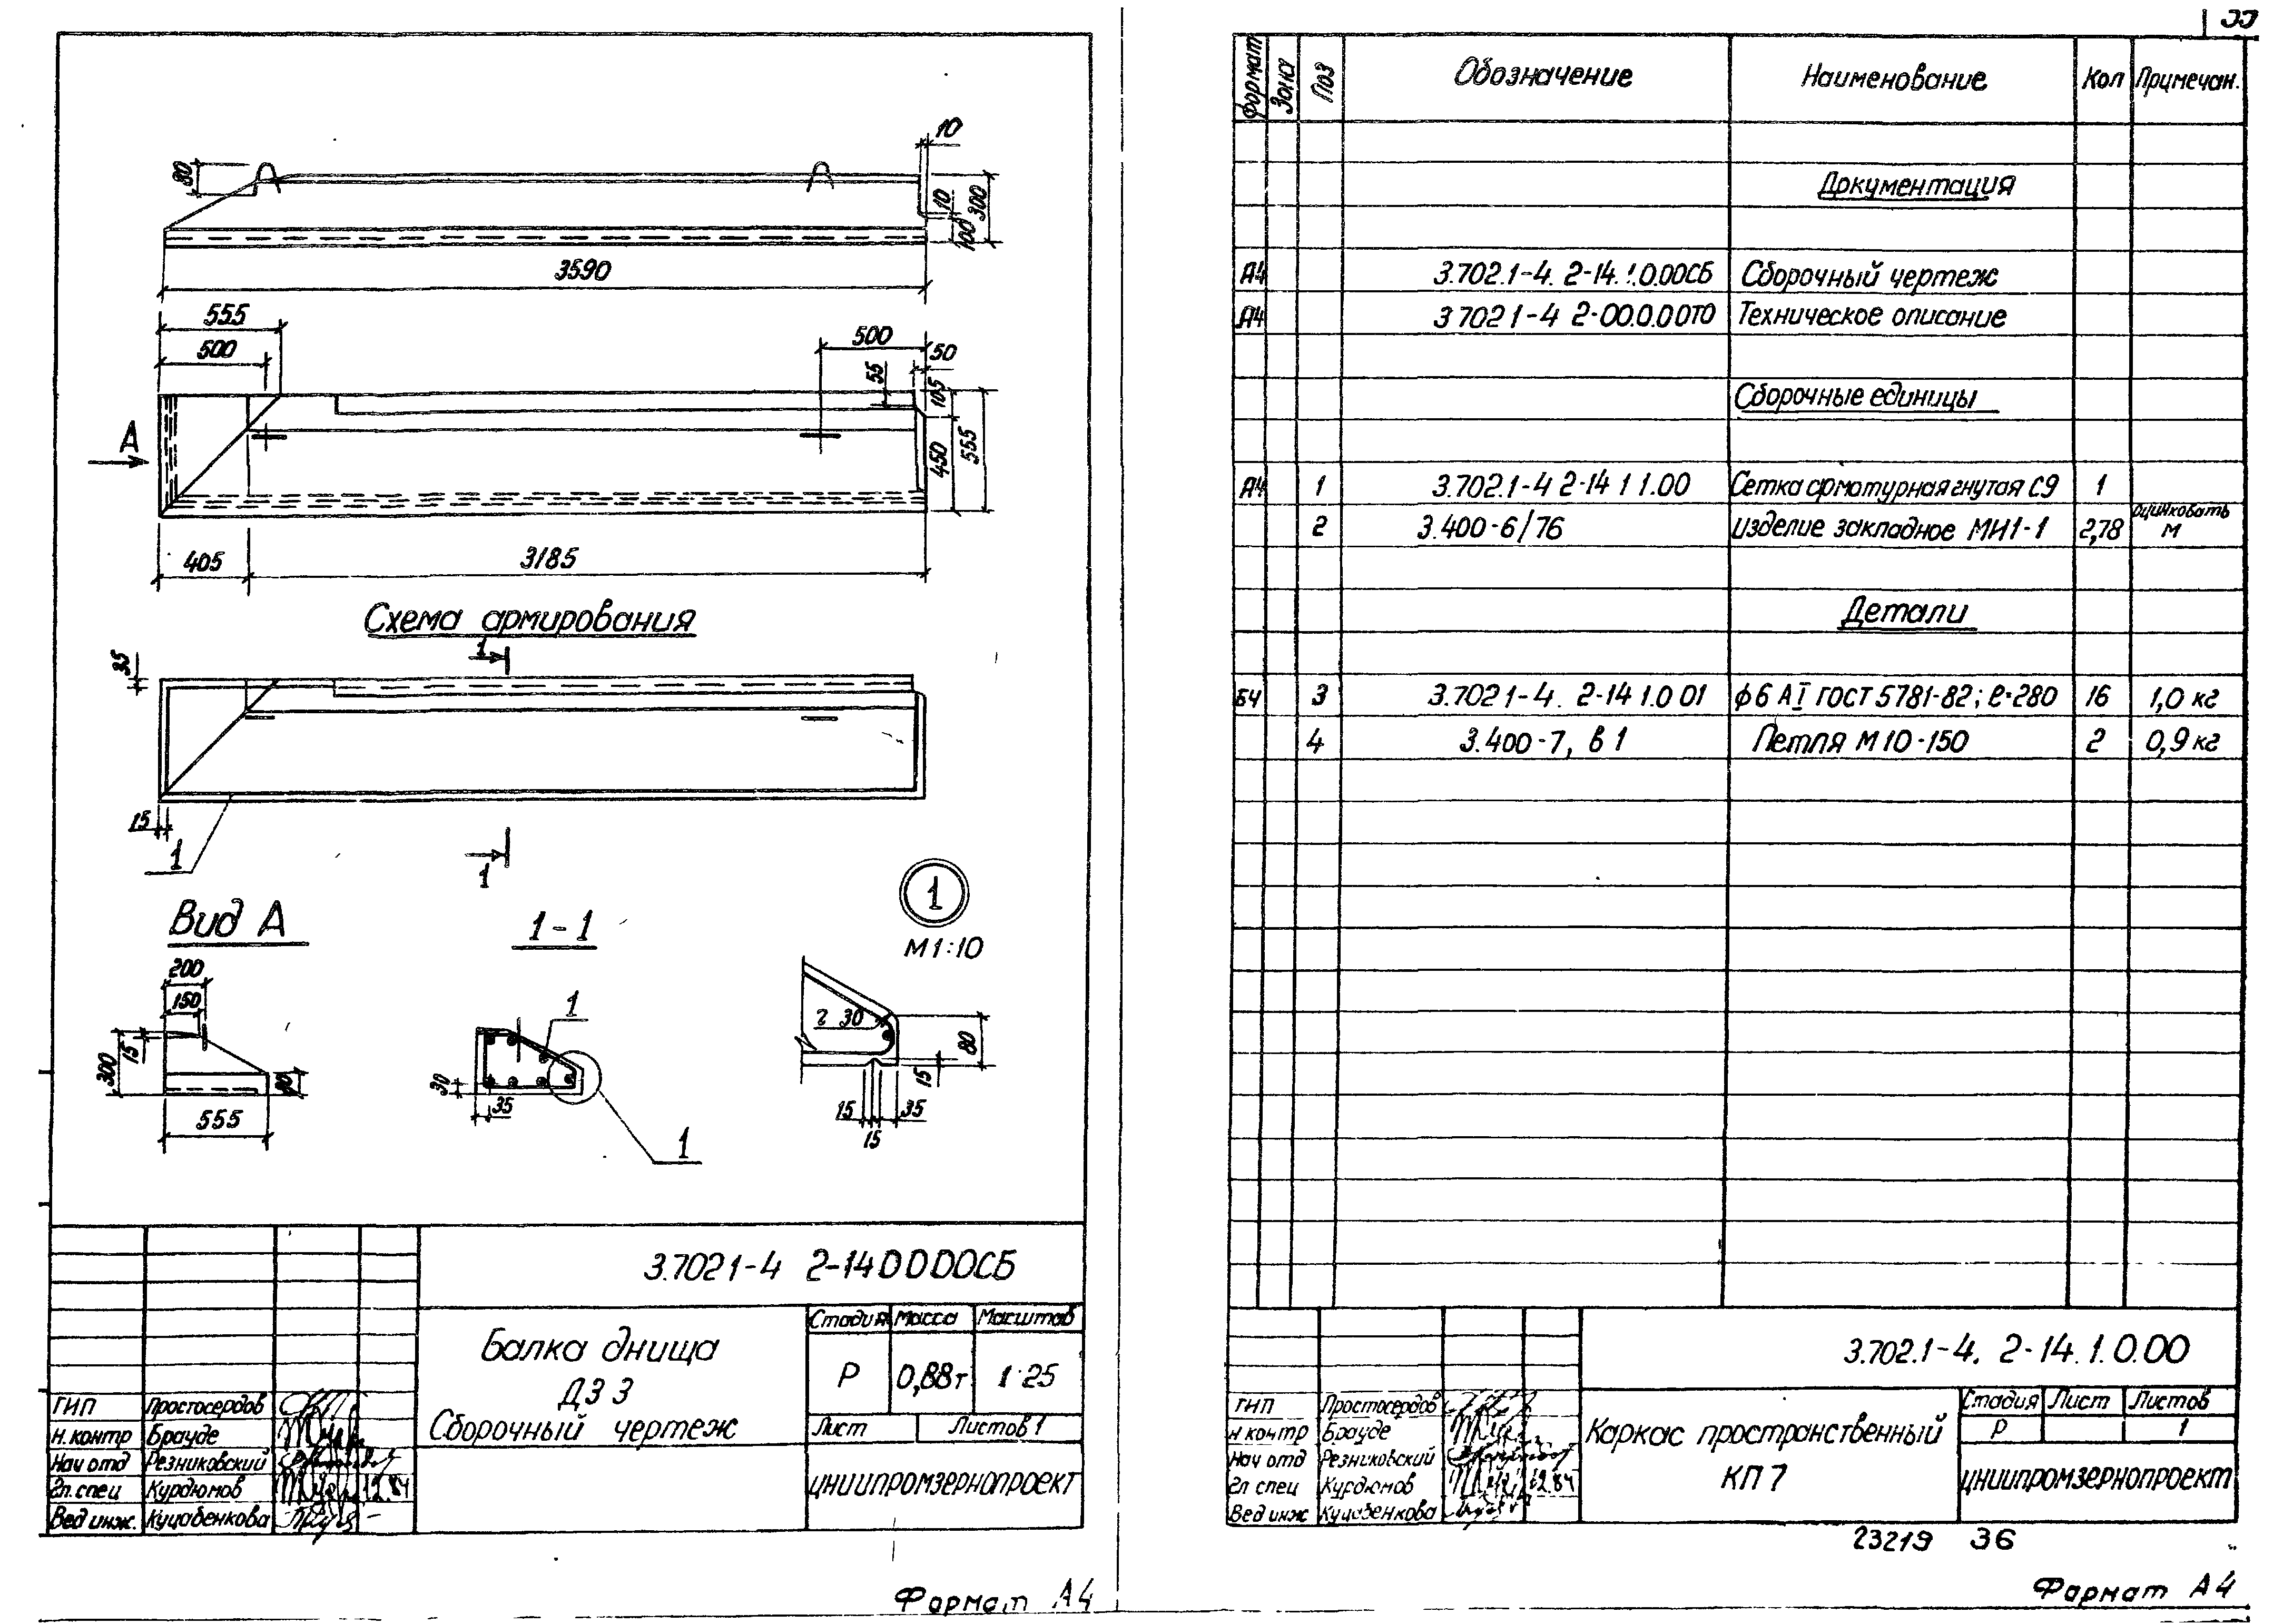 10
80
300
10
100
3590
555
500
500
50
55
105
450
555
А
405
3185
Схема армирования
1
35
15
1
1
1
М 1:10
Вид А
1-1
200
150
15
300
80
555
1
30
35
1
2 30
80
15
15
35
15
3.702 1-4 2-14 0 0 0 0СБ
Балка днища
ДЗ 3
Сборочный чертеж
Стадия Масса Масштаб
Р 0,88т 1:25
Лист Листов 1
ЦНИИПРОМЗЕРНОПРОЕКТ
ГИП Простосердов
Н. контр Брауде
Нач отд Резниковский
Гл. спец Курдюмов 12.84
Вед инж. Куцабенкова
Формат А4
Формат Зона Поз Обозначение Наименование Кол Примечан.
Документация
А4 3.702.1-4. 2-14.1.0.00СБ Сборочный чертеж
А4 3 702 1-4 2-00.0.00ТО Техническое описание
Сборочные единицы
А4 1 3.702.1-4 2-14 1 1.00 Сетка арматурная гнутая С9 1
2 3.400-6/76 Изделие закладное МИ1-1 2,78 оцинковать м
Детали
БЧ 3 3.702 1-4. 2-14 1.0 01 ф6 АI ГОСТ 5781-82; ℓ=280 16 1,0 кг
4 3.400-7, в 1 Петля М10-150 2 0,9 кг
3.702.1-4. 2-14.1.0.00
Каркас пространственный
КП 7
Стадия Лист Листов
Р 1
ЦНИИПРОМЗЕРНОПРОЕКТ
ГИП Простосердов
Н контр Брауде
Нач отд Резниковский
Гл спец Курдюмов 12.84
Вед инж Куцабенкова
23219 36
Формат А4